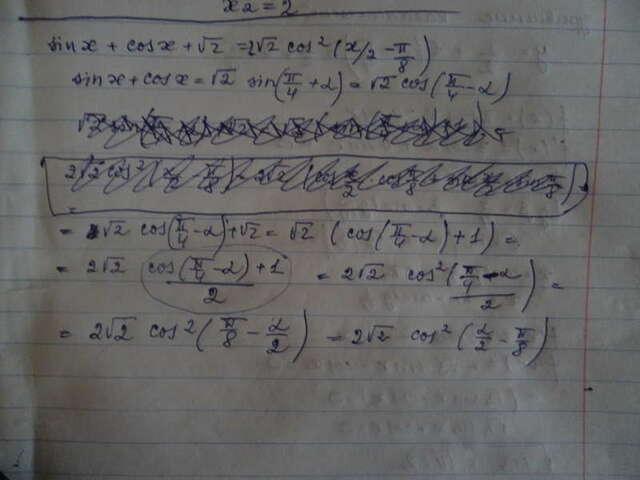 x₂ = 2
sin x + cos x + √2 = 2√2 cos² (x/2 - π/8)
sin x + cos x = √2 sin(π/4 + α) = √2 cos(π/4 - α)
= √2 cos(π/4 - α) + √2 = √2 (cos(π/4 - α) + 1) =
= 2√2 (cos(π/4 - α) + 1)/2 = 2√2 cos² ((π/4 - α)/2) =
= 2√2 cos² (π/8 - α/2) = 2√2 cos² (α/2 - π/8)